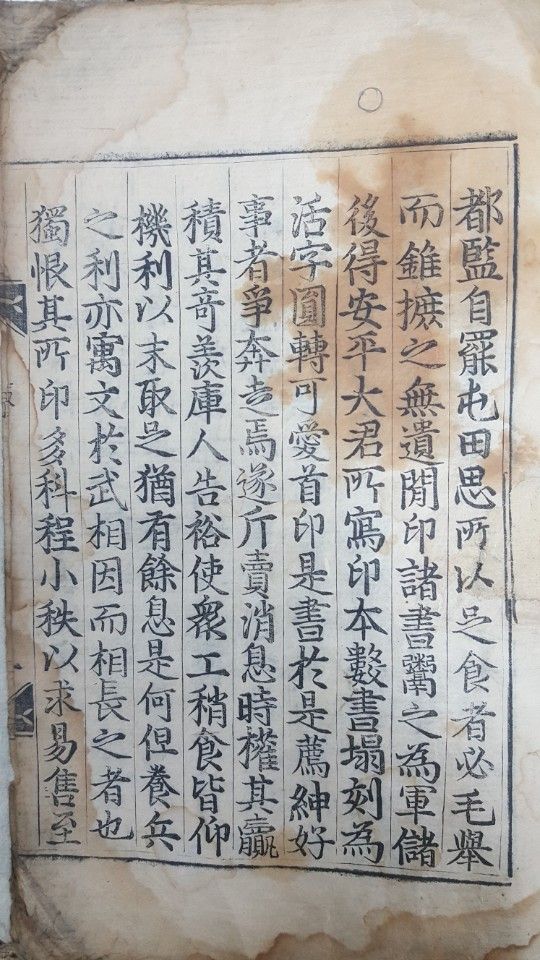 都監自罷屯田思所以足食者必毛舉
而錐摭之無遺閒印諸書鬻之為軍儲
後得安平大君所寫印本數書塌刻為
活字圓轉可愛首印是書於是薦紳好
事者爭奔走焉遂斤賣消息時權其贏
積其奇羨庫人告裕使衆工稍食皆仰
機利以末取足猶有餘息是何但養兵
之利亦寓文於武相因而相長之者也
獨恨其所印多科程小秩以求易售至